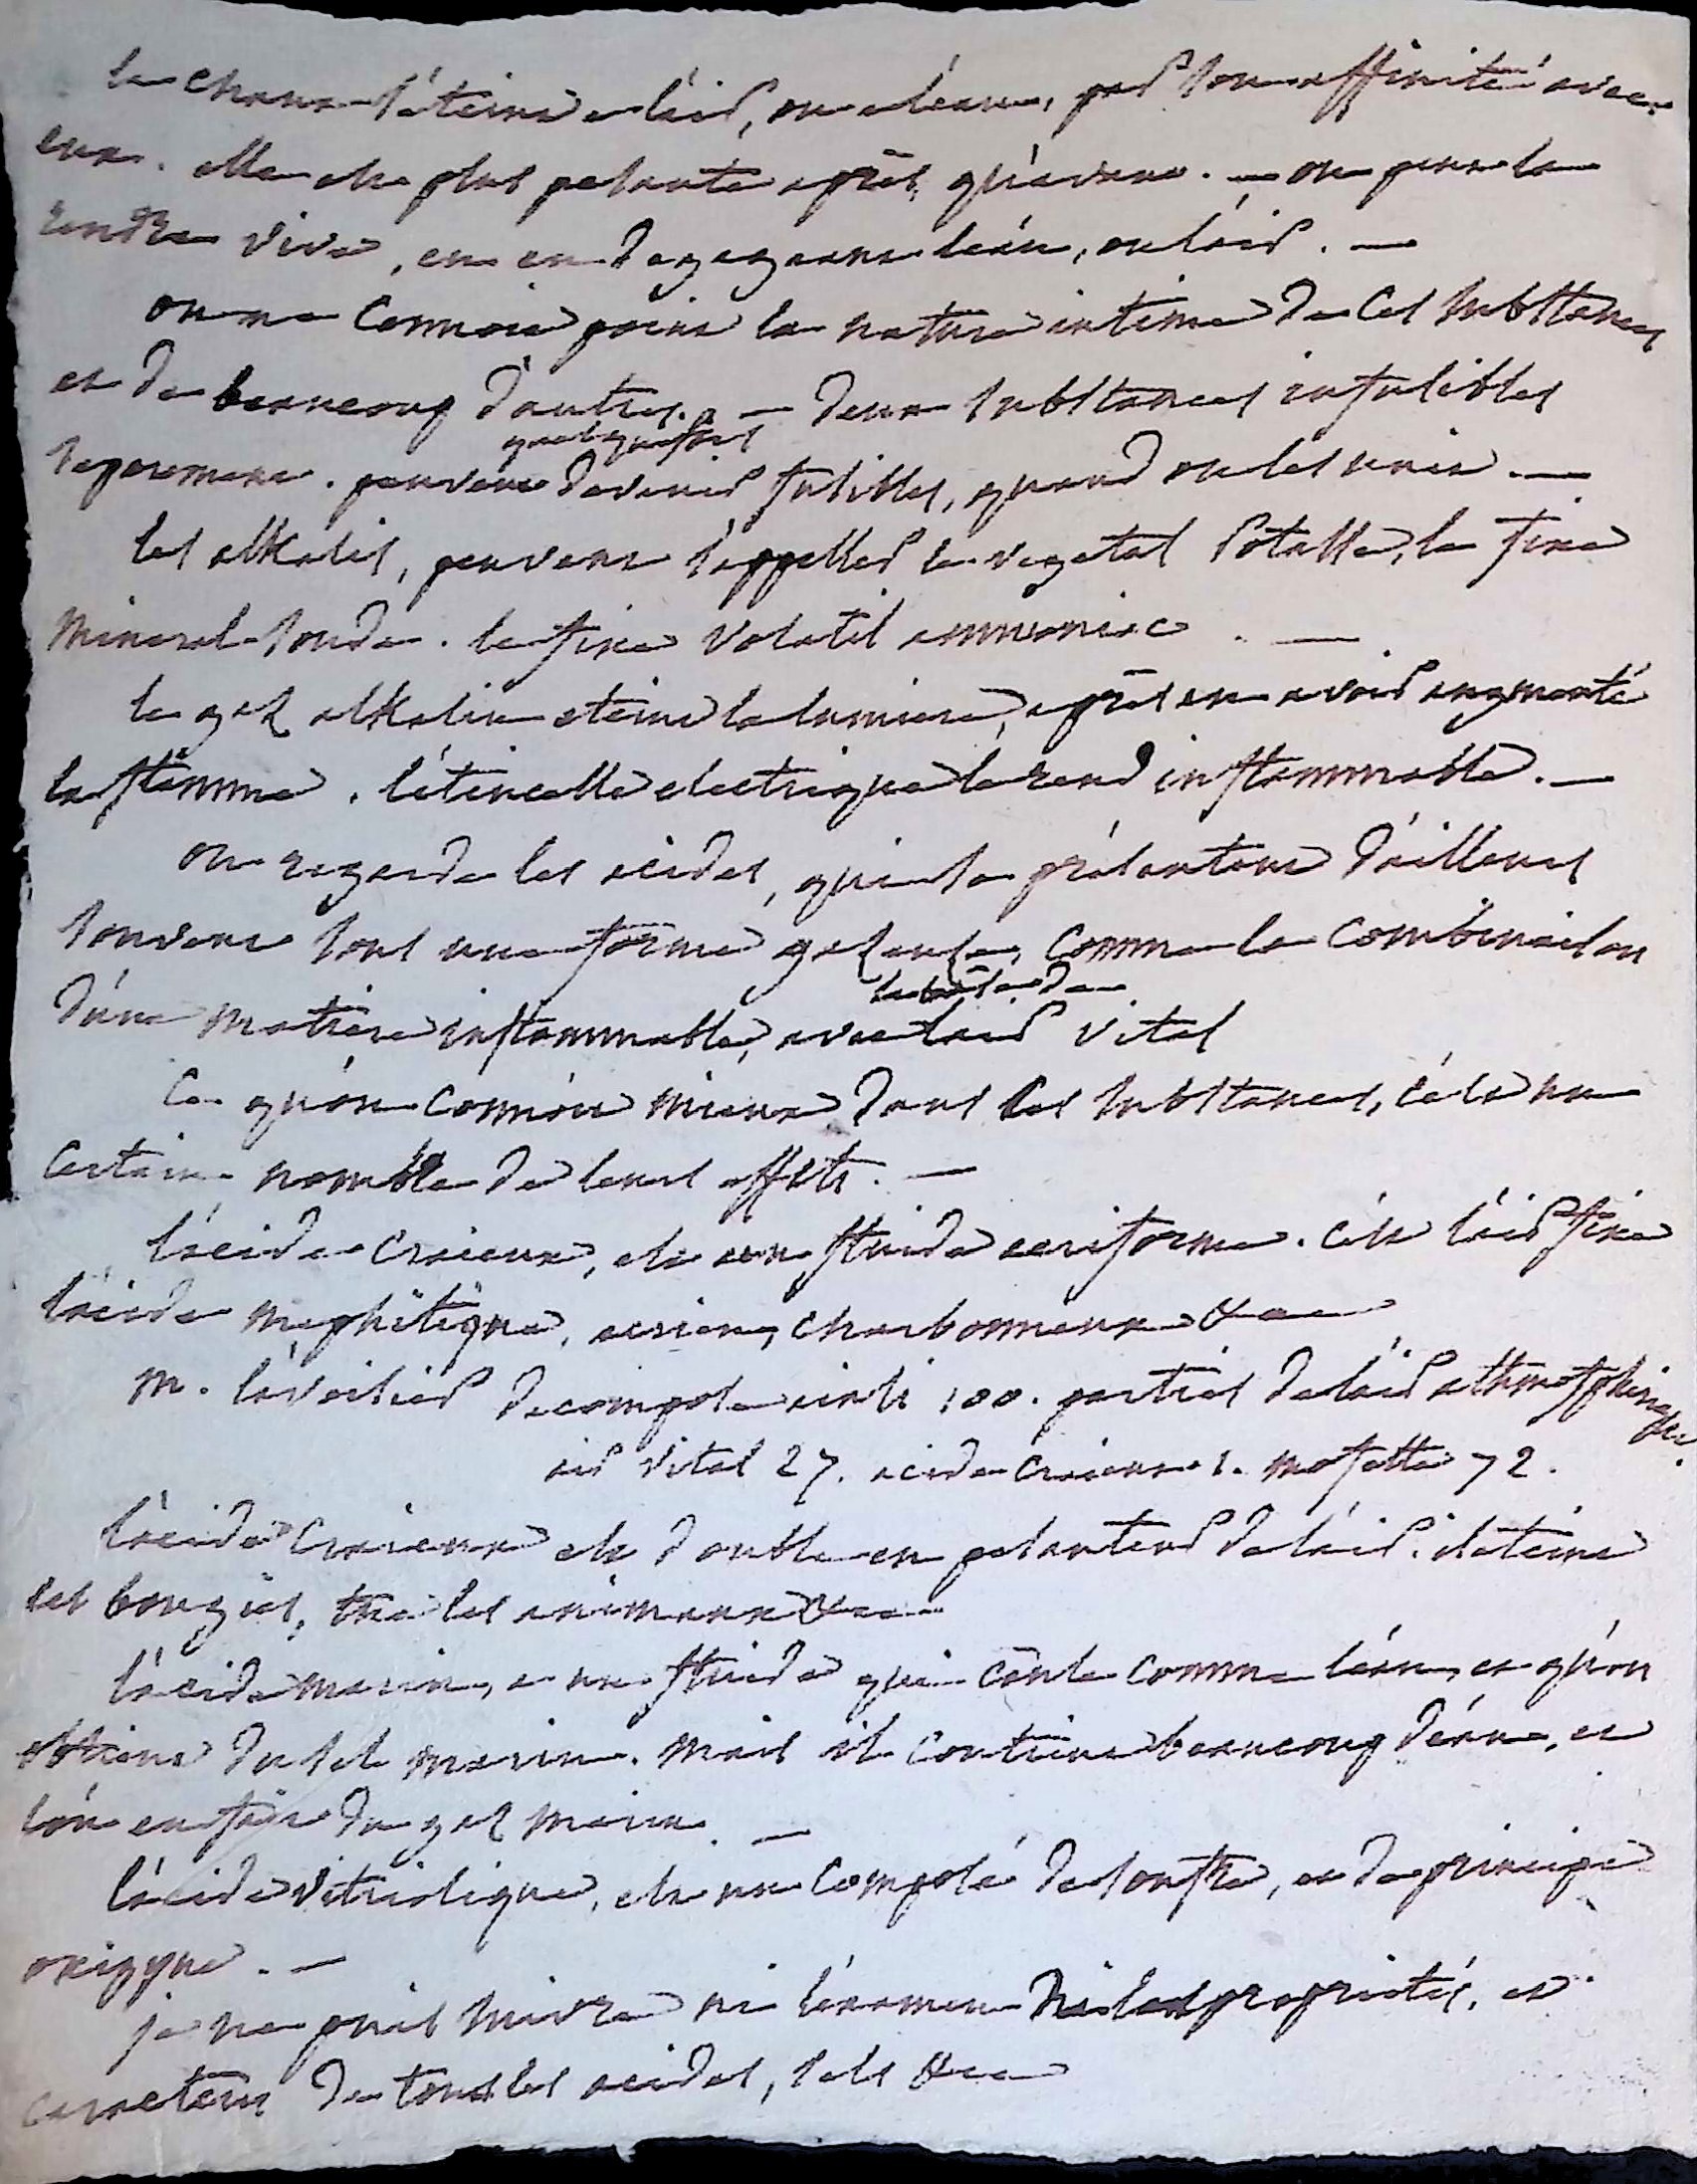 la chaux s'éteind a l'air, ou a l'eau, par son affinité avec
eux. elle est plus pesante après, qu'avant. — on peut la
rendre vive, en en degageant l'eau, ou l'air. —
on ne connoit point la nature intime de ces substances
et de beaucoup d'autres. — deux substances infusibles
quelquefois
separement. peuvent devenir fusibles, quand on les unit. —
les alkalis, peuvent s'appeller le vegetal potasse, le fixe
mineral soude. le fixe volatil ammoniac. —
le gaz alkalin eteint la lumiere, après en avoir augmenté
la flamme. l'étincelle electrique le rend inflammable. —
on regarde les acides, qui se présentent d'ailleurs
souvent sous une forme gazeuse, comme la combinaison
la base de
d'une matiere inflammable, avec l'air vital
ce qu'on connoit mieux dans ces substances, c'est un
certain nombre de leurs effets. —
l'acide craieux, est un fluide aeriforme. c'est l'air fixe
l'acide mephitique, aerien, charbonneux &c
m. lavoisier decompose ainsi 100. parties de l'air athmosphérique.
air vital 27. acide craieux 1. mofette 72.
l'acide craieux est double en pesanteur de l'air. il eteint
les bougies, tue les animaux &c
l'acide marin, a un fluide qui coule comme l'eau, et qu'on
obtient du sel marin. mais il contient beaucoup d'eau, et
l'on en tire du gaz marin. —
l'acide vitriolique, est un composé de soufre, et de principe
oxigyne. —
je ne puis suivre ni l'examen ni les proprietés, et
caracteres de tous les acides, sels &c